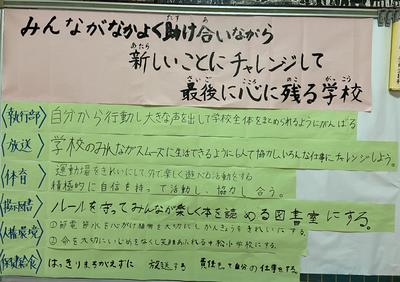 みんながなかよく助け合いながら
新しいことにチャレンジして
最後に心に残る学校
〈執行部〉自分から行動し大きな声を出して学校全体をまとめられるようにがんばる
〈放送〉学校のみんながスムーズに生活できるようにし、協力し、いろんな仕事にチャレンジしよう。
〈体育〉運動場をきれいにして外で楽しく遊べる活動をする
積極的に自信を持って活動し、協力し合う。
〈掲示図書〉ルールを守ってみんなが楽しく本を読める図書室にする。
〈人権環境〉①節電、節水を心がけ植物を大切にしかんきょうをきれいにする。
②命を大切にしいじめをなくし笑顔あふれる小学校にする。
〈保健給食〉はっきりまちがえずに 放送する 責任をもって自分の仕事をする。